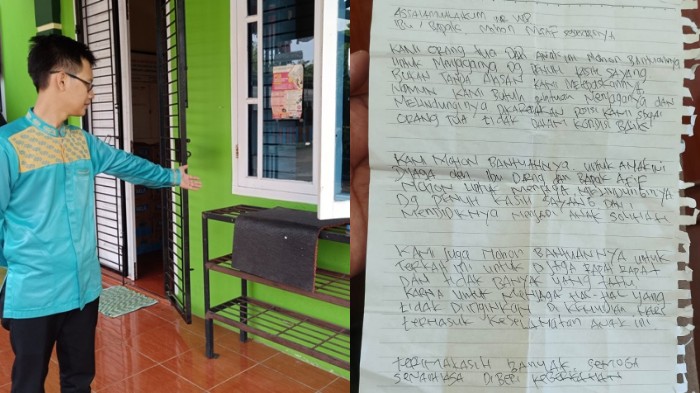 ASSALAMUALAIKUM WR WB
IBU / BAPAK MOHON MAAF SEBELUMNYA
KAMI ORANG TUA DARI ANAK INI MOHON BANTUANNYA
UNTUK MENJAGANYA DG PENUH KASIH SAYANG
BUKAN TANPA ALASAN KAMI MELEPASKANNYA
NAMUN KAMI BUTUH BANTUAN MENJAGANYA DAN
MELINDUNGINYA DIKARENAKAN POSISI KAMI SBGAI
ORANG TUA TIDAK DALAM KONDISI BAIK
KAMI MOHON BANTUANNYA UNTUK ANAK INI
DIJAGA DARI IBU DARIA DAN BAPAK ACIP
MOHON UNTUK MENJAGA MELINDUNGINYA
DG PENUH KASIH SAYANG DAN
MENDIDIKNYA MENJADI ANAK SOLEHAH
KAMI JUGA MOHON BANTUANNYA UNTUK
TERKAIT INI UNTUK DI JAGA RAPAT RAPAT
DAN TIDAK BANYAK YANG TAHU
KARNA UNTUK MENJAGA HAL-HAL YANG
TIDAK DIINGINKAN DI KEMUDIAN HARI
TERMASUK KESELAMATAN ANAK INI
TERIMAKASIH BANYAK SEMOGA
SENANTIASA DIBERI KEBERKAHAN